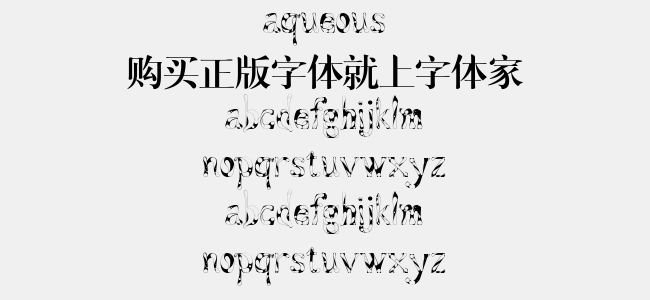 aqueous
购买正版字体就上字体家
abcdefghijklm
nopqrstuvwxyz
abcdefghijklm
nopqrstuvwxyz